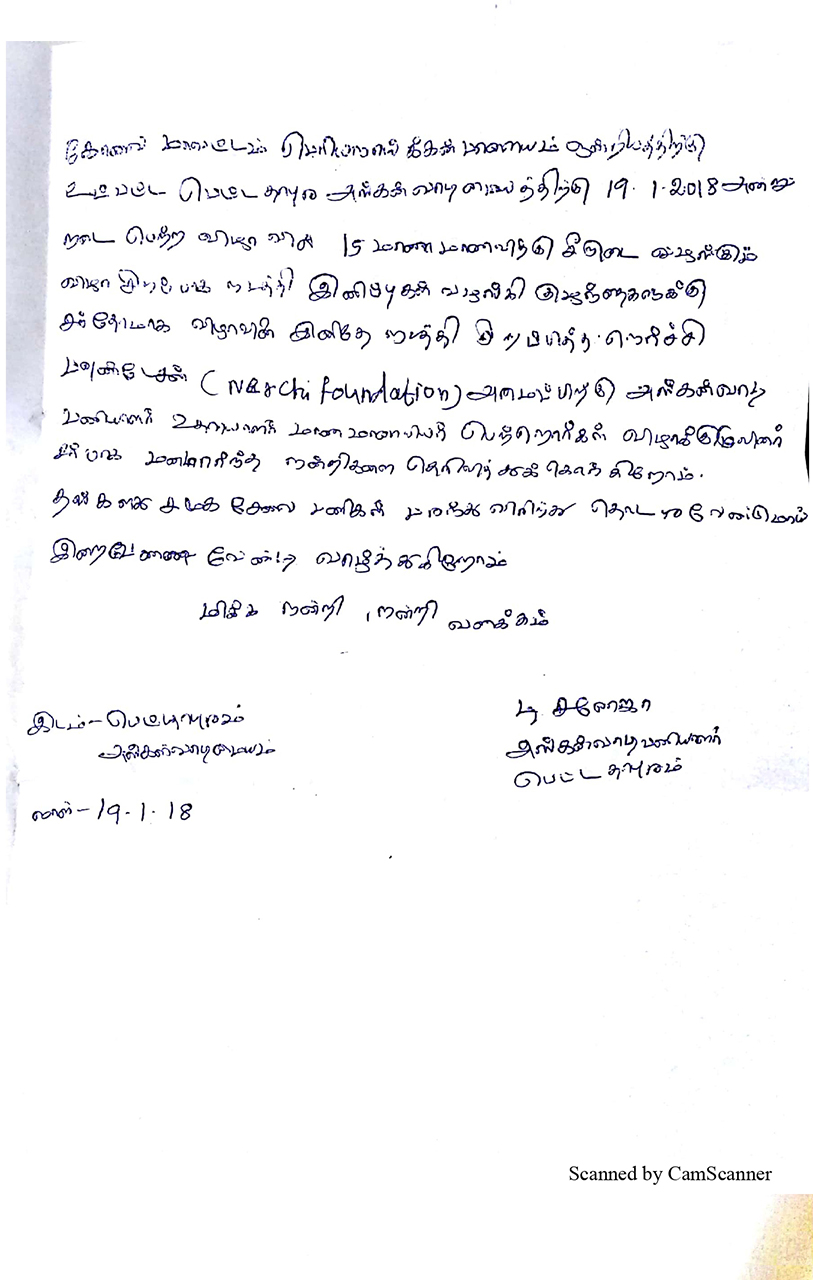 கோவை மாவட்டம் பெரியநாயக்கன் பாளையம் ஒன்றியத்திற்கு
உட்பட்ட பெட்டதாபுர அங்கன்வாடி மையத்திற்கு 19.1.2018 அன்று
நடை பெற்ற விழாவில் 15 மாணமாணவிக்கு சீருடை வழங்கும்
விழா சிறப்பாக நடத்தி இனிப்புகள் வழங்கி குழந்தைகளுக்கு
சந்தோமாக விழாவின் இனிதே நடத்தி சிறப்பித்த
(Nerchi foundation) அமைப்பிற்கு அங்கன்வாடி
பணியாளர் உதவியாளர் பெற்றோர்கள் விழாக்குழுவினர்
சார்பாக மனமார்ந்த நன்றிகளை தெரிவித்துக் கொள்கிறோம்.
சமூக சேவை பணிகள் தொடர வேண்டுமாய்
வேண்டி வாழ்த்துகிறோம்
மிக்க நன்றி, நன்றி வணக்கம்
இடம் - பெட்டதாபுரம்
அங்கன்வாடி மையம்
நாள் - 19.1.18
சரோஜா
அங்கன்வாடி பணியாளர்
பெட்டதாபுரம்
Scanned by CamScanner